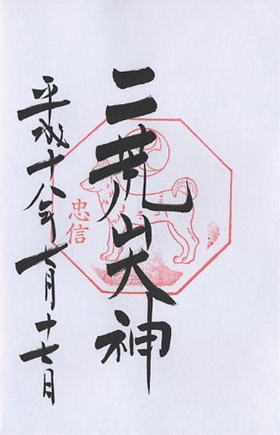 二荒山大神
忠信
平成十八年七月十七日